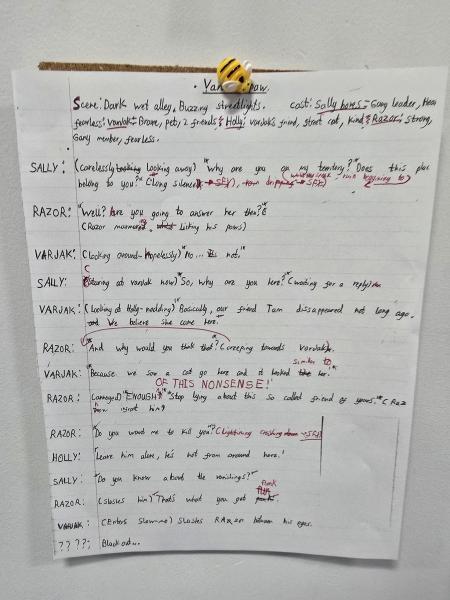 · Var paw.
Scene: Dark wet alley, Buzzing streetlights. cast: Sally bones = Gang leader,
fearless: Varjak: Brave, pet, 2 friends, & Holly: varjak's friend, street cat, kind & Razor: strong,
Gang member, fearless.
SALLY: (Carelessly looking looking away) "Why are you on my territory? Does this place
belong to you?" (long silence → SFX), rain dripping → SFX)
RAZOR: "Well? Are you going to answer her then?"
(Razor licking his paws)
VARJAK: (Looking around - hopelessly) No... its not.
SALLY: (Staring at varjak now) So, why are you here? (waiting for a reply)
VARJAK: (Looking at Holly - nodding) Basically, our friend Tam dissappeared not long ago.
and We believe she came here.
RAZOR: "And why would you think that?" (creeping towards varjak).
similar to
VARJAK: "Because we saw a cat go here and it looked like her."
OF THIS NONSENSE!'
RAZOR: (annoyed) "ENOUGH!" "Stop lying about this so called friend of yours." (Raz
RAZOR: "Do you want me to kill you?" (lightning crashing down → SFX)
HOLLY: "Leave him alone, he's not from around here."
SALLY: "Do you know about the vanishings?"
RAZOR: (slashes him) "That's what you get punk
VARJAK: (Enters Slow-mo) Slashes RAzor between his eyes.
????: Blackout...